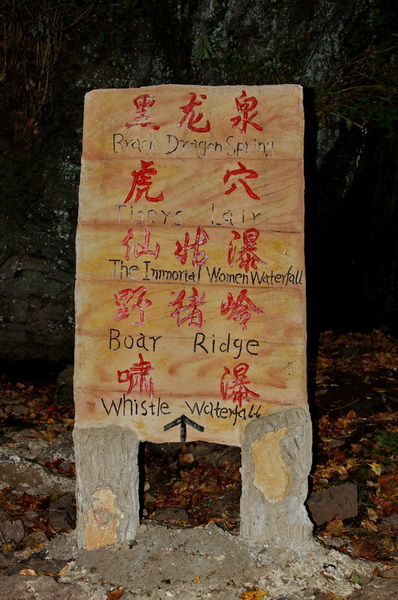 黑龙泉
Brack Dragon Spring
虎穴
Tigers Lair
仙姑瀑
The Immortal Women Waterfall
野猪岭
Boar Ridge
啸瀑
Whistle Waterfall